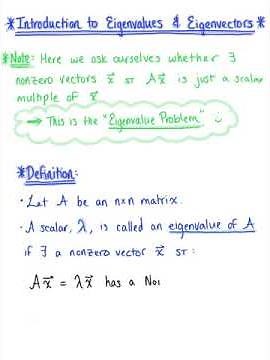 *Introduction to Eigenvalues & Eigenvectors*
*Note: Here we ask ourselves whether ∃
nonzero vectors x⃗ ST Ax⃗ is just a scalar
multiple of x⃗
→ This is the "Eigenvalue Problem" :)
*Definition:
• Let A be an n×n matrix.
• A scalar, λ, is called an eigenvalue of A
if ∃ a nonzero vector x⃗ ST:
Ax⃗ = λx⃗ has a No